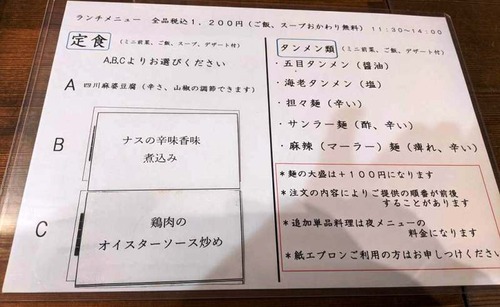 ランチメニュー 全品税込1,200円(ご飯、スープおかわり無料) 11:30~14:00
定食 (ミニ前菜、ご飯、スープ、デザート付)
A,B,Cよりお選びください
A 四川麻婆豆腐(辛さ、山椒の調節できます)
B ナスの辛味香味
煮込み
C 鶏肉の
オイスターソース炒め
タンメン類 (ミニ前菜、ご飯、デザート付)
・五目タンメン(醤油)
・海老タンメン(塩)
・担々麺(辛い)
・サンラー麺(酢、辛い)
・麻辣(マーラー)麺(痺れ、辛い)
*麺の大盛は+100円になります
*注文の内容によりご提供の順番が前後
することがあります
*追加単品料理は夜メニューの
料金になります
*紙エプロンご利用の方はお申しつけください